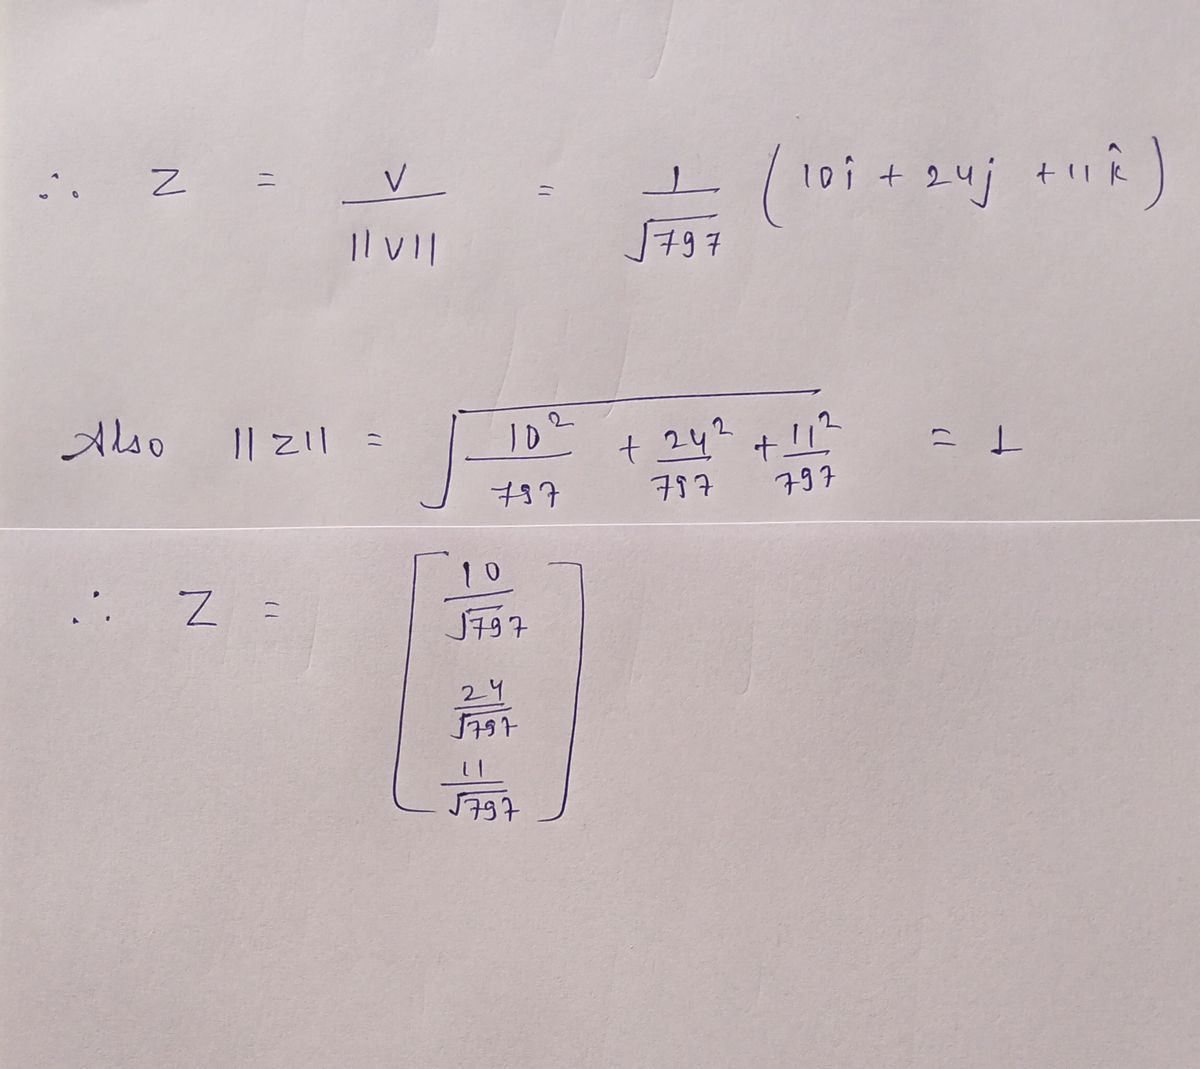 ∴ Z = V / ||V|| = 1 / √797 (10î + 24j + 11k̂)
Also ||Z|| = √(10² / 797 + 24² / 797 + 11² / 797) = 1
∴ Z = [10 / √797
24 / √797
11 / √797]